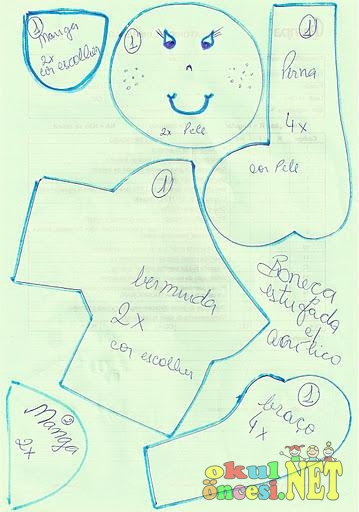 1
manga
2x
cor escolher
1
2x Pele
1
Perna
4x
cor Pele
1
bermuda
2x
cor escolher
Boneca
estufada
e/
acrílico
Manga
2
2x
1
braço
4x
okul
öncesi.NET